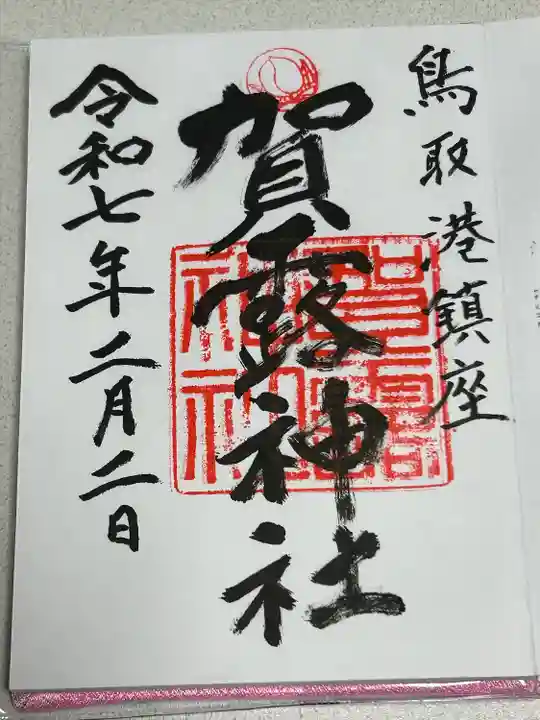 鳥取港鎮座
賀露神社
令和七年二月二日